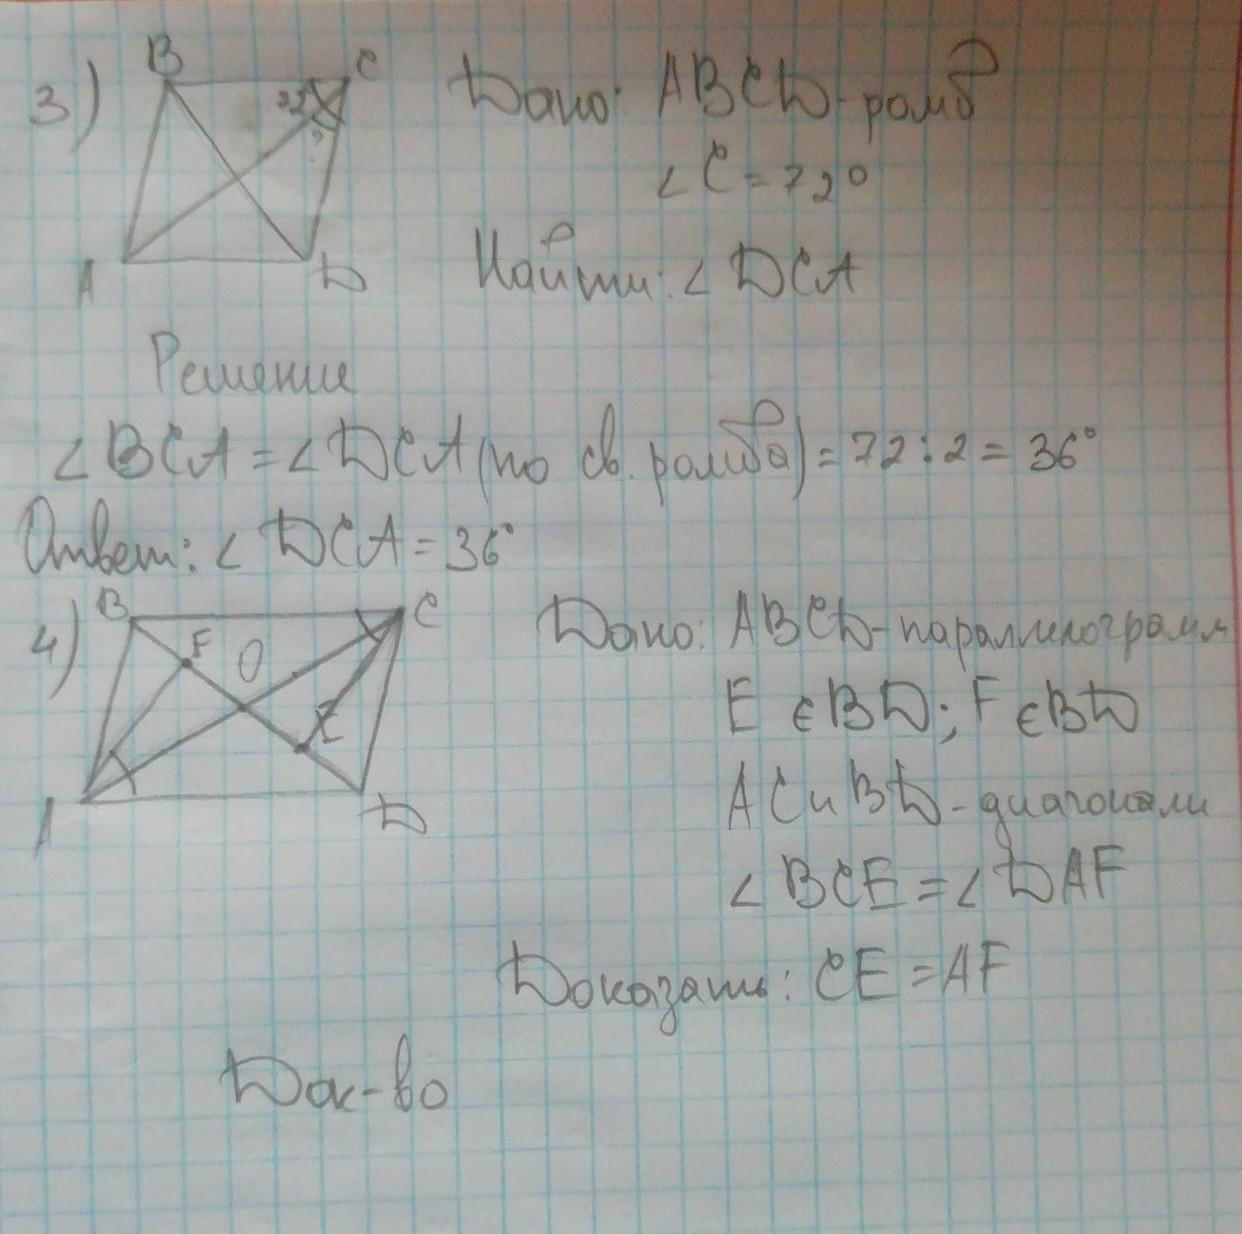 3)
B C
72
?
A D
Дано: ABCD-ромб
∠C=72°
Найти: ∠DCA
Решение
∠BCA=∠DCA(по св. ромба)=72:2=36°
Ответ: ∠DCA=36°
4)
B C
F O
E
A D
Дано: ABCD-параллелограмм
E ∈BD; F∈BD
AC и BD-диагонали
∠BCE=∠DAF
Доказать: CE=AF
Док-во